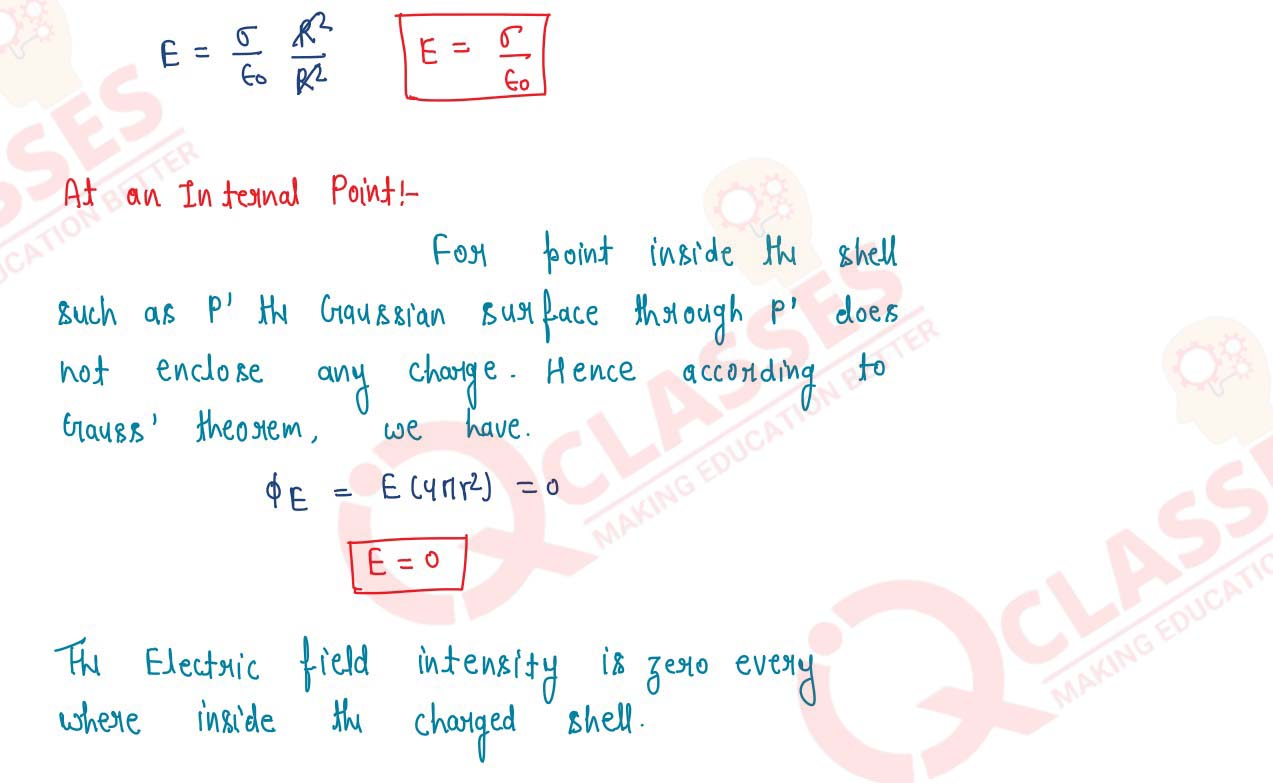 E = σ/ϵ₀ R²/R² E = σ/ϵ₀
At an Internal Point:-
For point inside the shell
such as P' the Gaussian surface through P' does
not enclose any charge. Hence according to
Gauss' theorem, we have.
ϕE = E(4πr²) = 0
E = 0
The Electric field intensity is zero every
where inside the charged shell.
SSES
UCATION BETTER
QCLASSES
MAKING EDUCATION BETTER
QCLASSE
MAKING EDUCATION